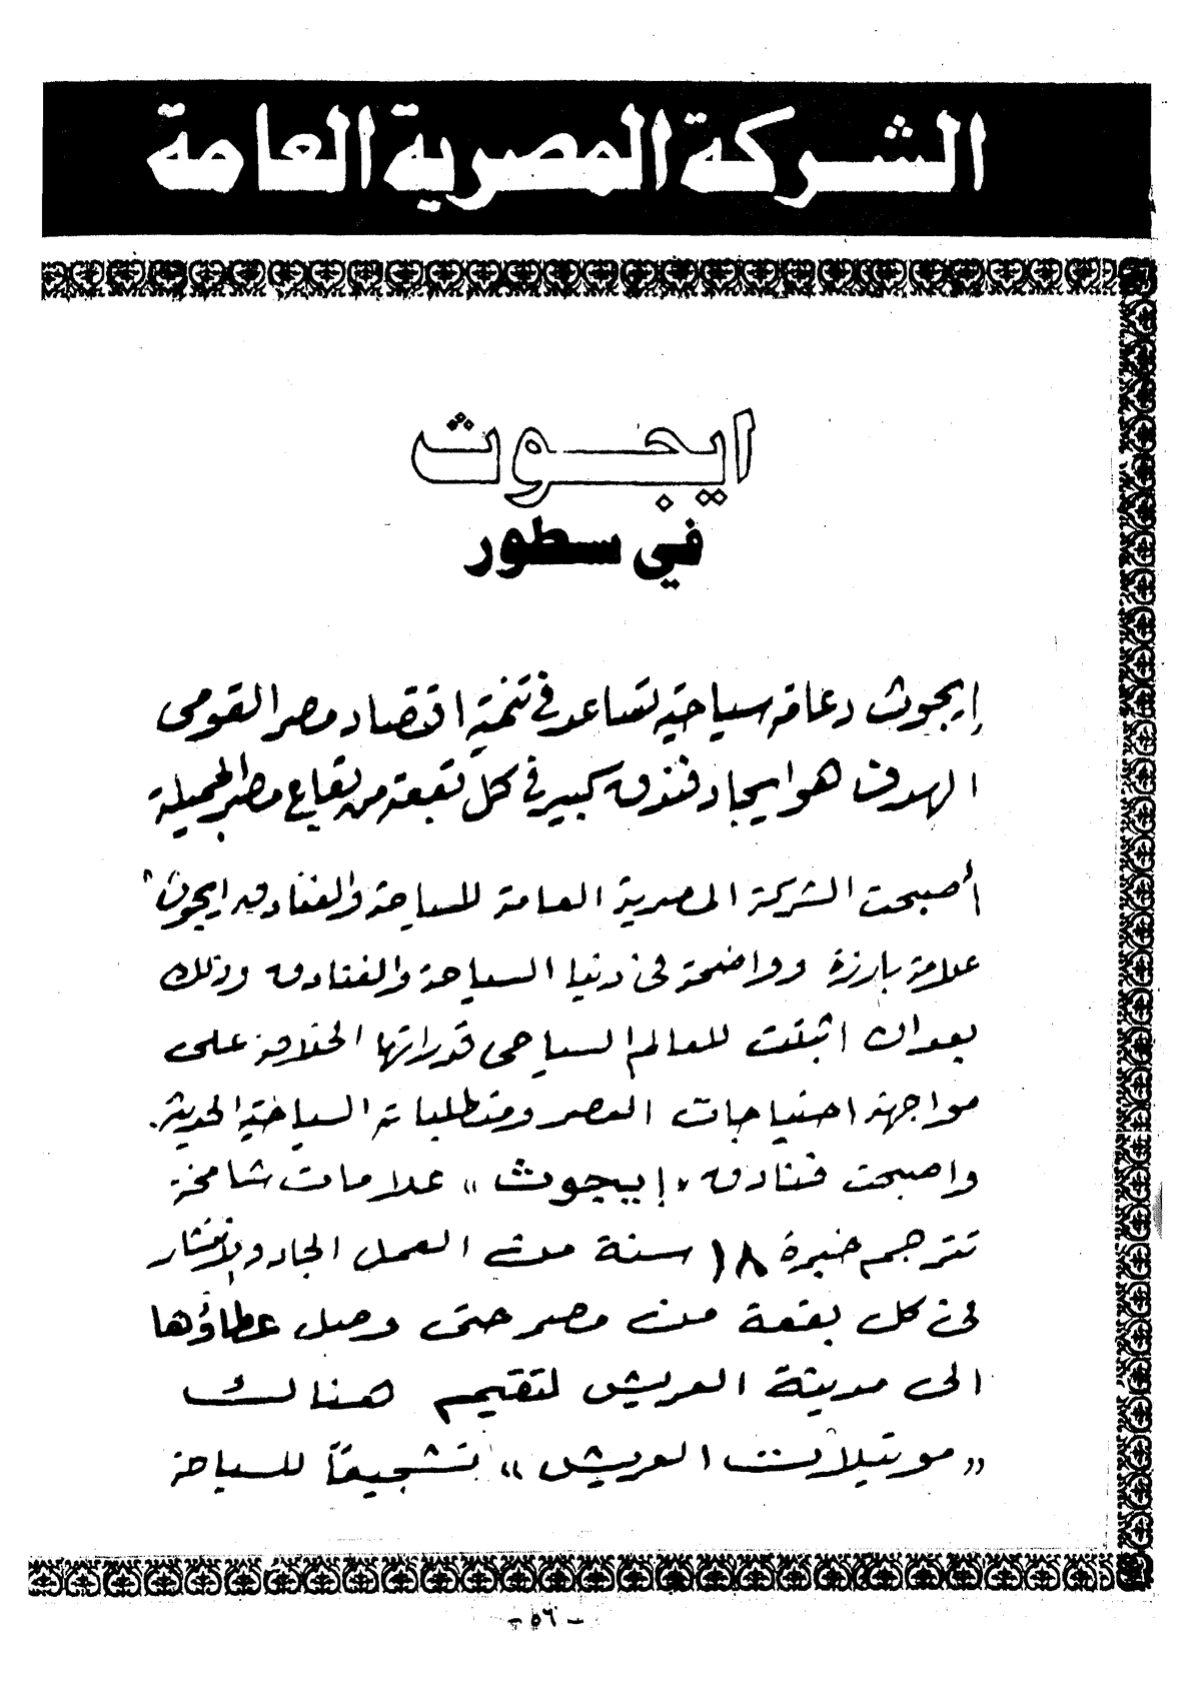 الشركة المصرية العامة
ايجوث
في سطور
إيجوث دعامة سياحية تساعد في تنمية اقتصاد مصر القومى
الهدف هو ايجاد فندق كبير في كل بقعة من بقاع مصر الجميلة
أصبحت الشركة المصرية العامة للسياحة والفنادق ايجوث "
علامة بارزة وواضحة فى دنيا السياحة والفنادق وذلك
بعد ان اثبتت للعالم السياحى قدراتها الخلاقة على
مواجهة احتياجات العصر ومتطلبات السياحة الحديثة.
واصبحت فنادق « إيجوث » علامات شامخة
تترجم خبرة ١٨ سنة من العمل الجاد والانتشار
فى كل بقعة من مصر حتى وصل عطاؤها
الى مدينة العريش لتقيم هنالك
« موتيلات العريش » تشجيعاً للسياحة
- ٥٦ -